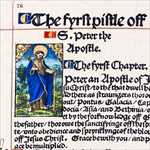 76
The fyrst pistle off
S. Peter the
Apostle.
The fyrst Chapter.
Peter an Apostle of J
su Christ, to the that dwell h
there as straungers thorow
out, Pontus, Galacia, Capa
docia, Asia, and Bethinia, ele
by the forknowledge of god
the father, thorow the sanctifyinge off the
te, unto obedience and spryncklynge of the bloud
off Jesus Christ. Grace be with you, and pe